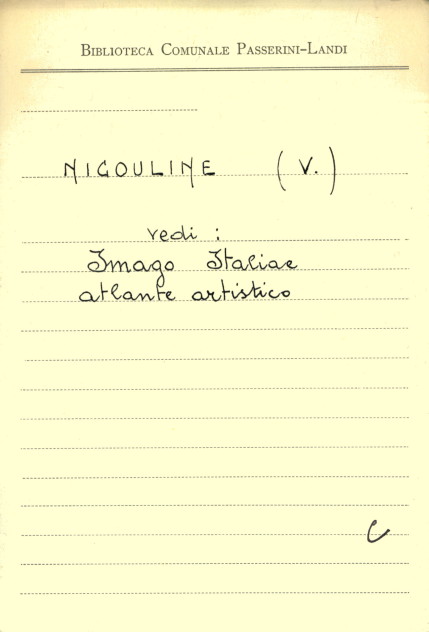 BIBLIOTECA COMUNALE PASSERINI-LANDI
NIGOULINE (V.)
vedi :
Imago Italiae
atlante artistico
C